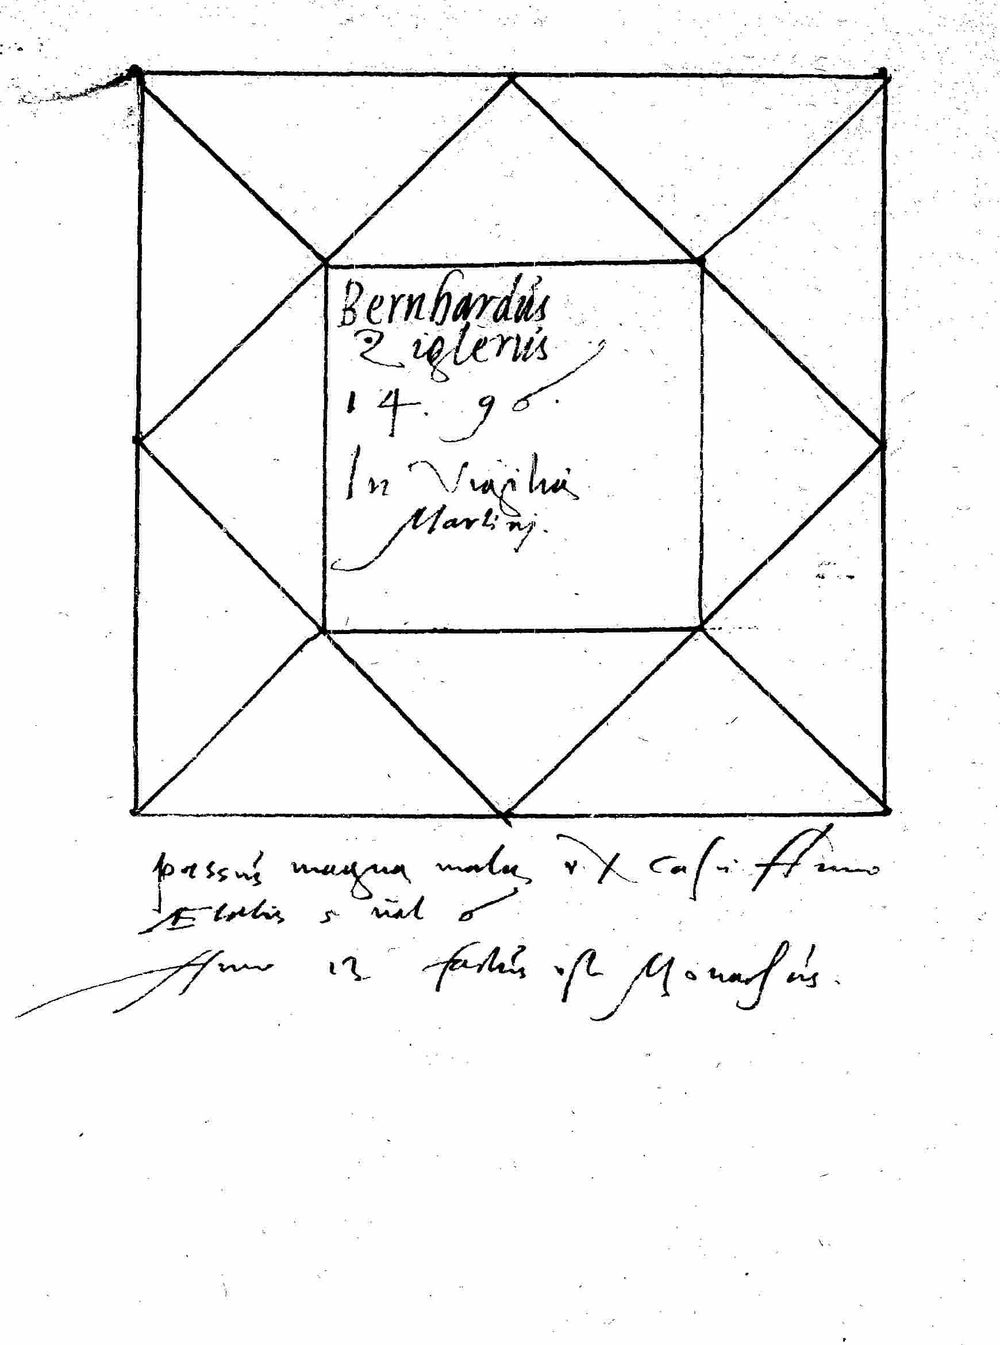 Bernhardus
Ziglerus
14. 96.
In Vigilia
Martinj.
passus magna mala ex casu Anno
Ætatis 5 uel 6
Anno 12 factus est Monachus.